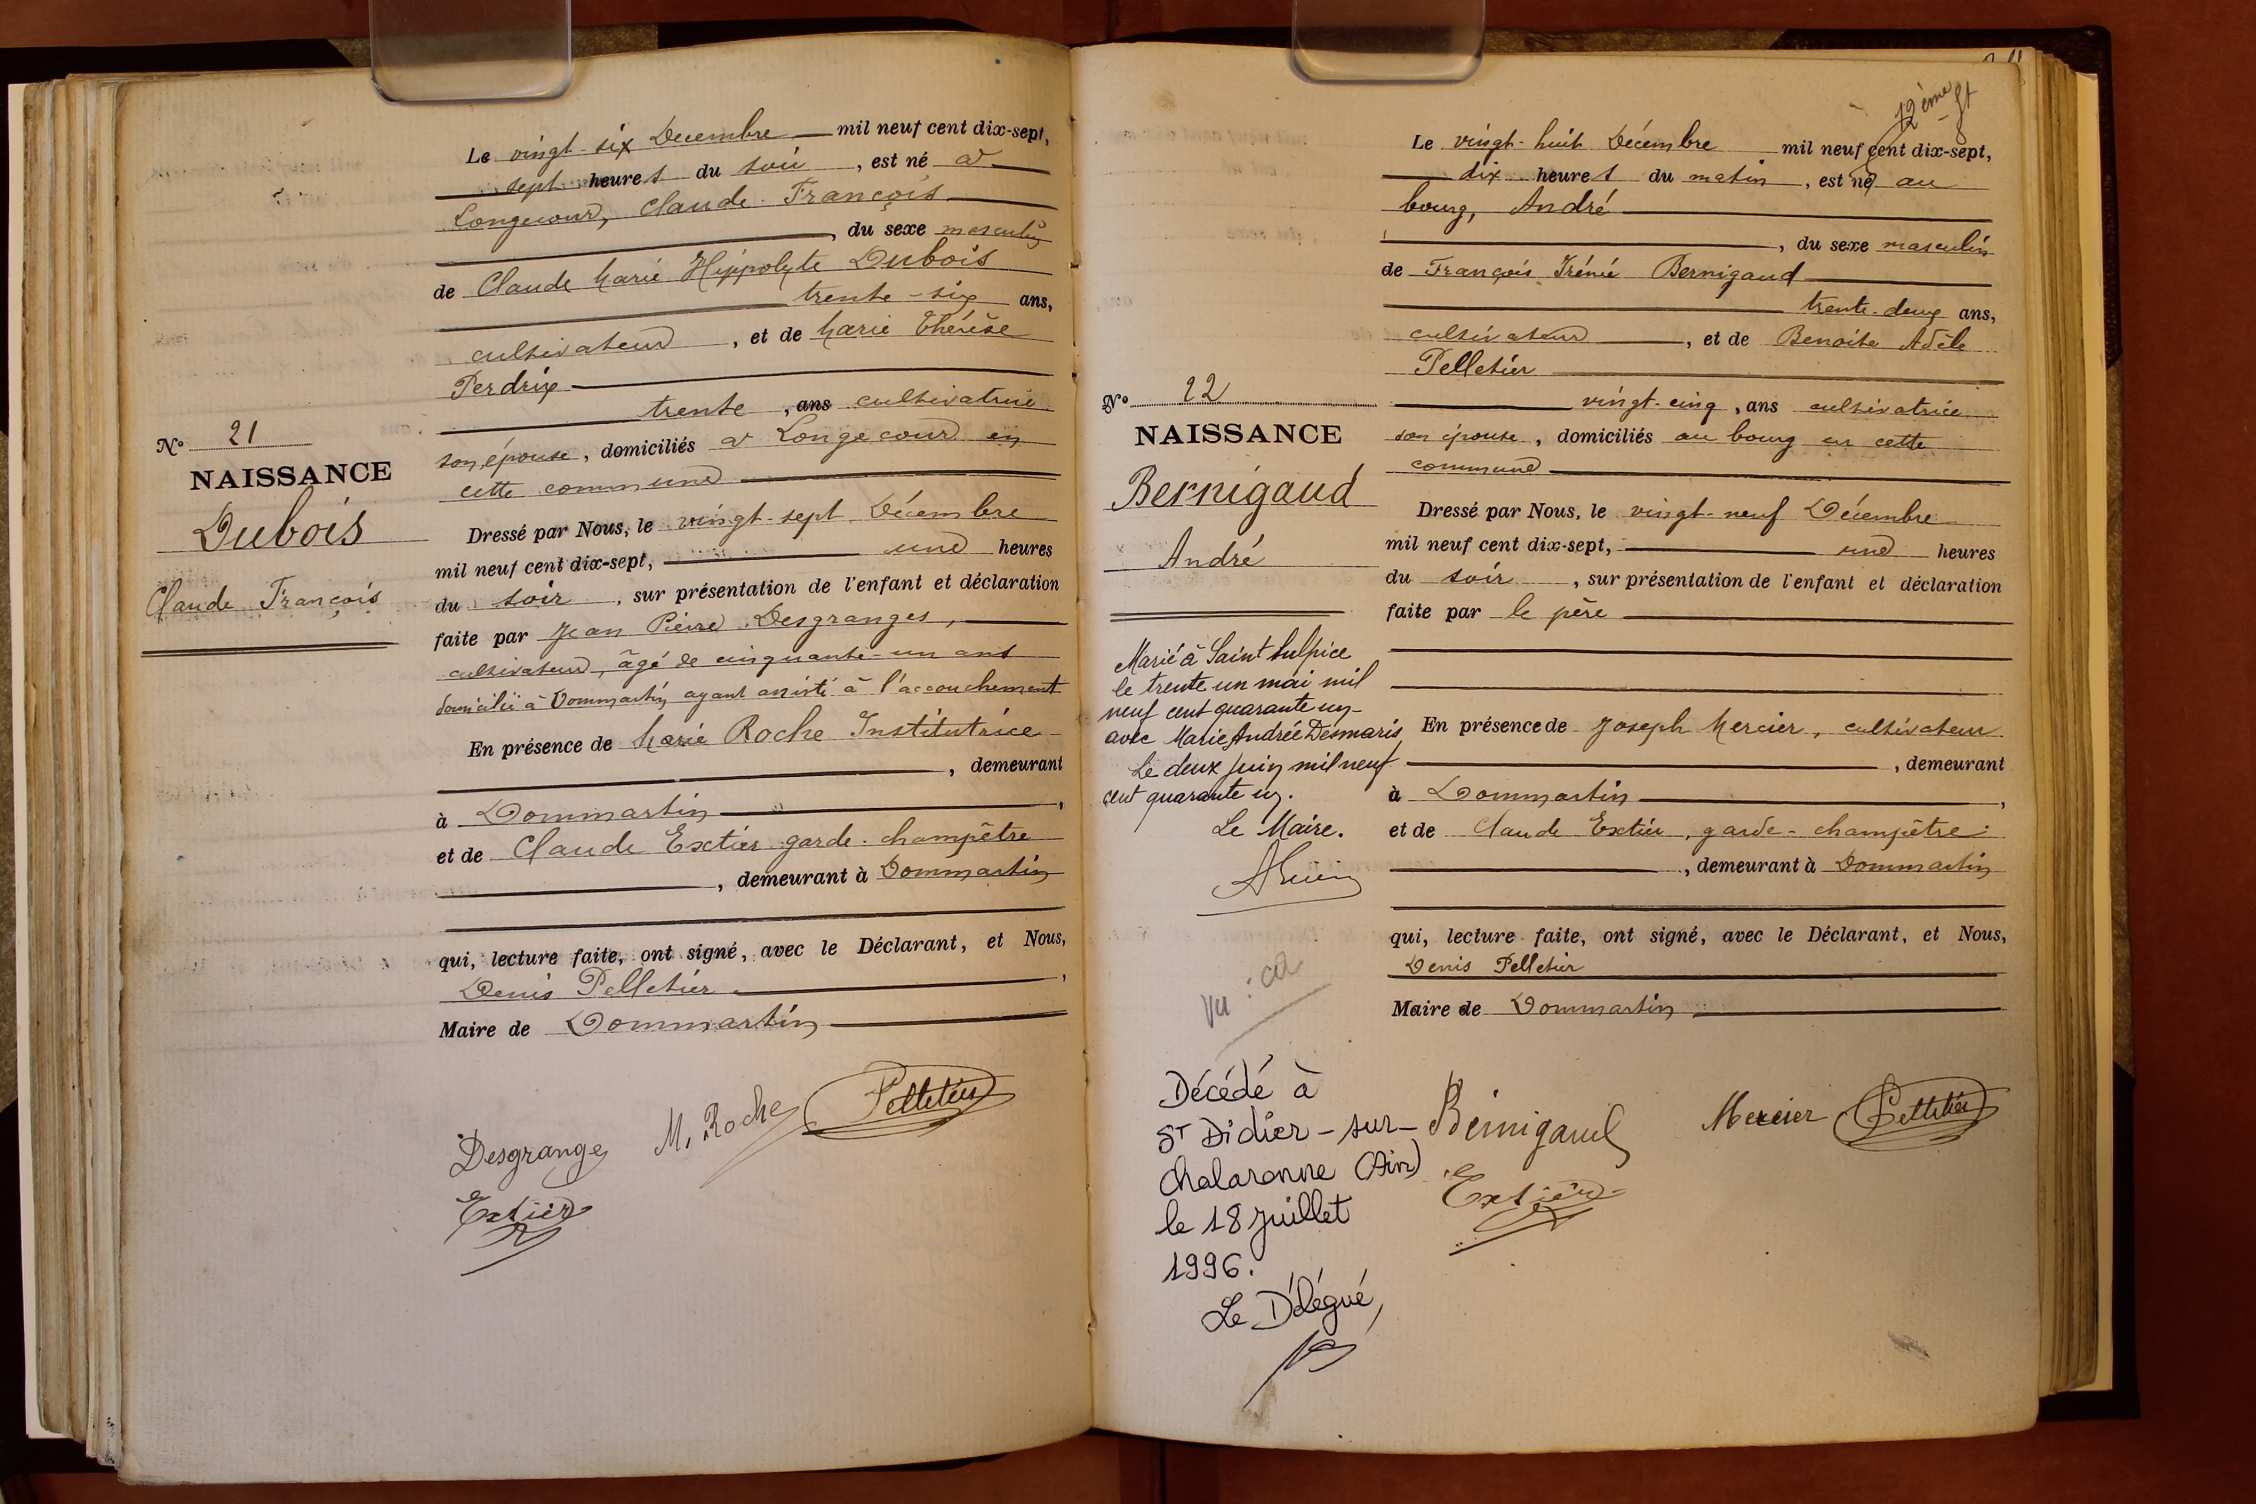 Le vingt-six Decembre mil neuf cent dix-sept,
sept heures du soir, est né à
Longecour, Claude François
, du sexe masculin
de Claude Marie Hippolyte Dubois
trente-six ans,
cultivateur, et de Marie Thérèse
Perdrix
trente, ans cultivatrice
son épouse, domiciliés à Longecour en
cette commune
N° 21
NAISSANCE
Dubois
Claude François
Dressé par Nous, le vingt-sept Décembre
mil neuf cent dix-sept, une heures
du soir, sur présentation de l'enfant et déclaration
faite par Jean Pierre Desgranges,
cultivateur, âgé de cinquante-un ans
domicilié à Dommartin ayant assisté à l'accouchement
En présence de Marie Roche Institutrice
, demeurant
à Dommartin,
et de Claude Extier garde-champêtre
, demeurant à Dommartin
qui, lecture faite, ont signé, avec le Déclarant, et Nous,
Denis Pelletier,
Maire de Dommartin
Desgrange M. Roche Pelletier
Extier
12ème ft
Le vingt-huit Décembre mil neuf cent dix-sept,
dix heures du matin, est né au
bourg, André
, du sexe masculin
de François Irénée Bernigaud
trente-deux ans,
cultivateur, et de Benoite Adèle
Pelletier
vingt-cinq, ans cultivatrice
son épouse, domiciliés au bourg en cette
commune
N° 22
NAISSANCE
Bernigaud
André
Dressé par Nous, le vingt-neuf Décembre
mil neuf cent dix-sept, une heures
du soir, sur présentation de l'enfant et déclaration
faite par le père
En présence de Joseph Mercier, cultivateur
, demeurant
à Dommartin,
et de Claude Extier, garde-champêtre
, demeurant à Dommartin
qui, lecture faite, ont signé, avec le Déclarant, et Nous,
Denis Pelletier
Maire de Dommartin
Bernigaud Mercier Pelletier
Extier
Marié à Saint Sulpice
le trente un mai mil
neuf cent quarante un
avec Marie Andrée Desmaris
Le deux juin mil neuf
cent quarante un.
Le Maire.
Vu :
Décédé à
St Didier-sur-
Chalaronne (Ain)
le 18 juillet
1996.
Le Délégué,